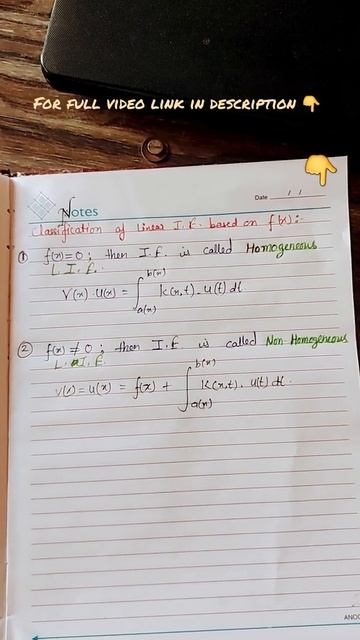 FOR FULL VIDEO LINK IN DESCRIPTION 👇
Date / /
Notes
Classification of Linear I.E. based on f(x):-
① f(x)=0; then I.E. is called Homogeneous
L.I.E.
V(x).U(x) = ∫_{a(x)}^{b(x)} K(x,t).u(t) dt
② f(x) ≠ 0; then I.E. is called Non-Homogeneous
L.I.E.
V(x)=u(x) = f(x) + ∫_{a(x)}^{b(x)} K(x,t). u(t) dt.